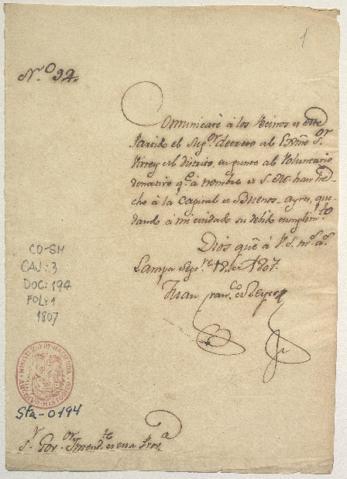 1
N.º 92.
Comunicaré à los Vecinos de este
Partido el Sup.or decreto del Exmo S.or
Virrey del Distrito, en punto al Voluntario
donativo q.e à nombre de S. M. han he
cho à la Capital de Buenos ayres, que
dando à mi cuidado su debido cumplim.to
Dios gue à V. S. m.s a.s
Lampa 1807.
Juan fran.co de
CO-SM
CAJ: 3
DOC: 194
FOL: 1
1807
Sta-0194
S.r Gov.or Intend.te de esta Prov.a